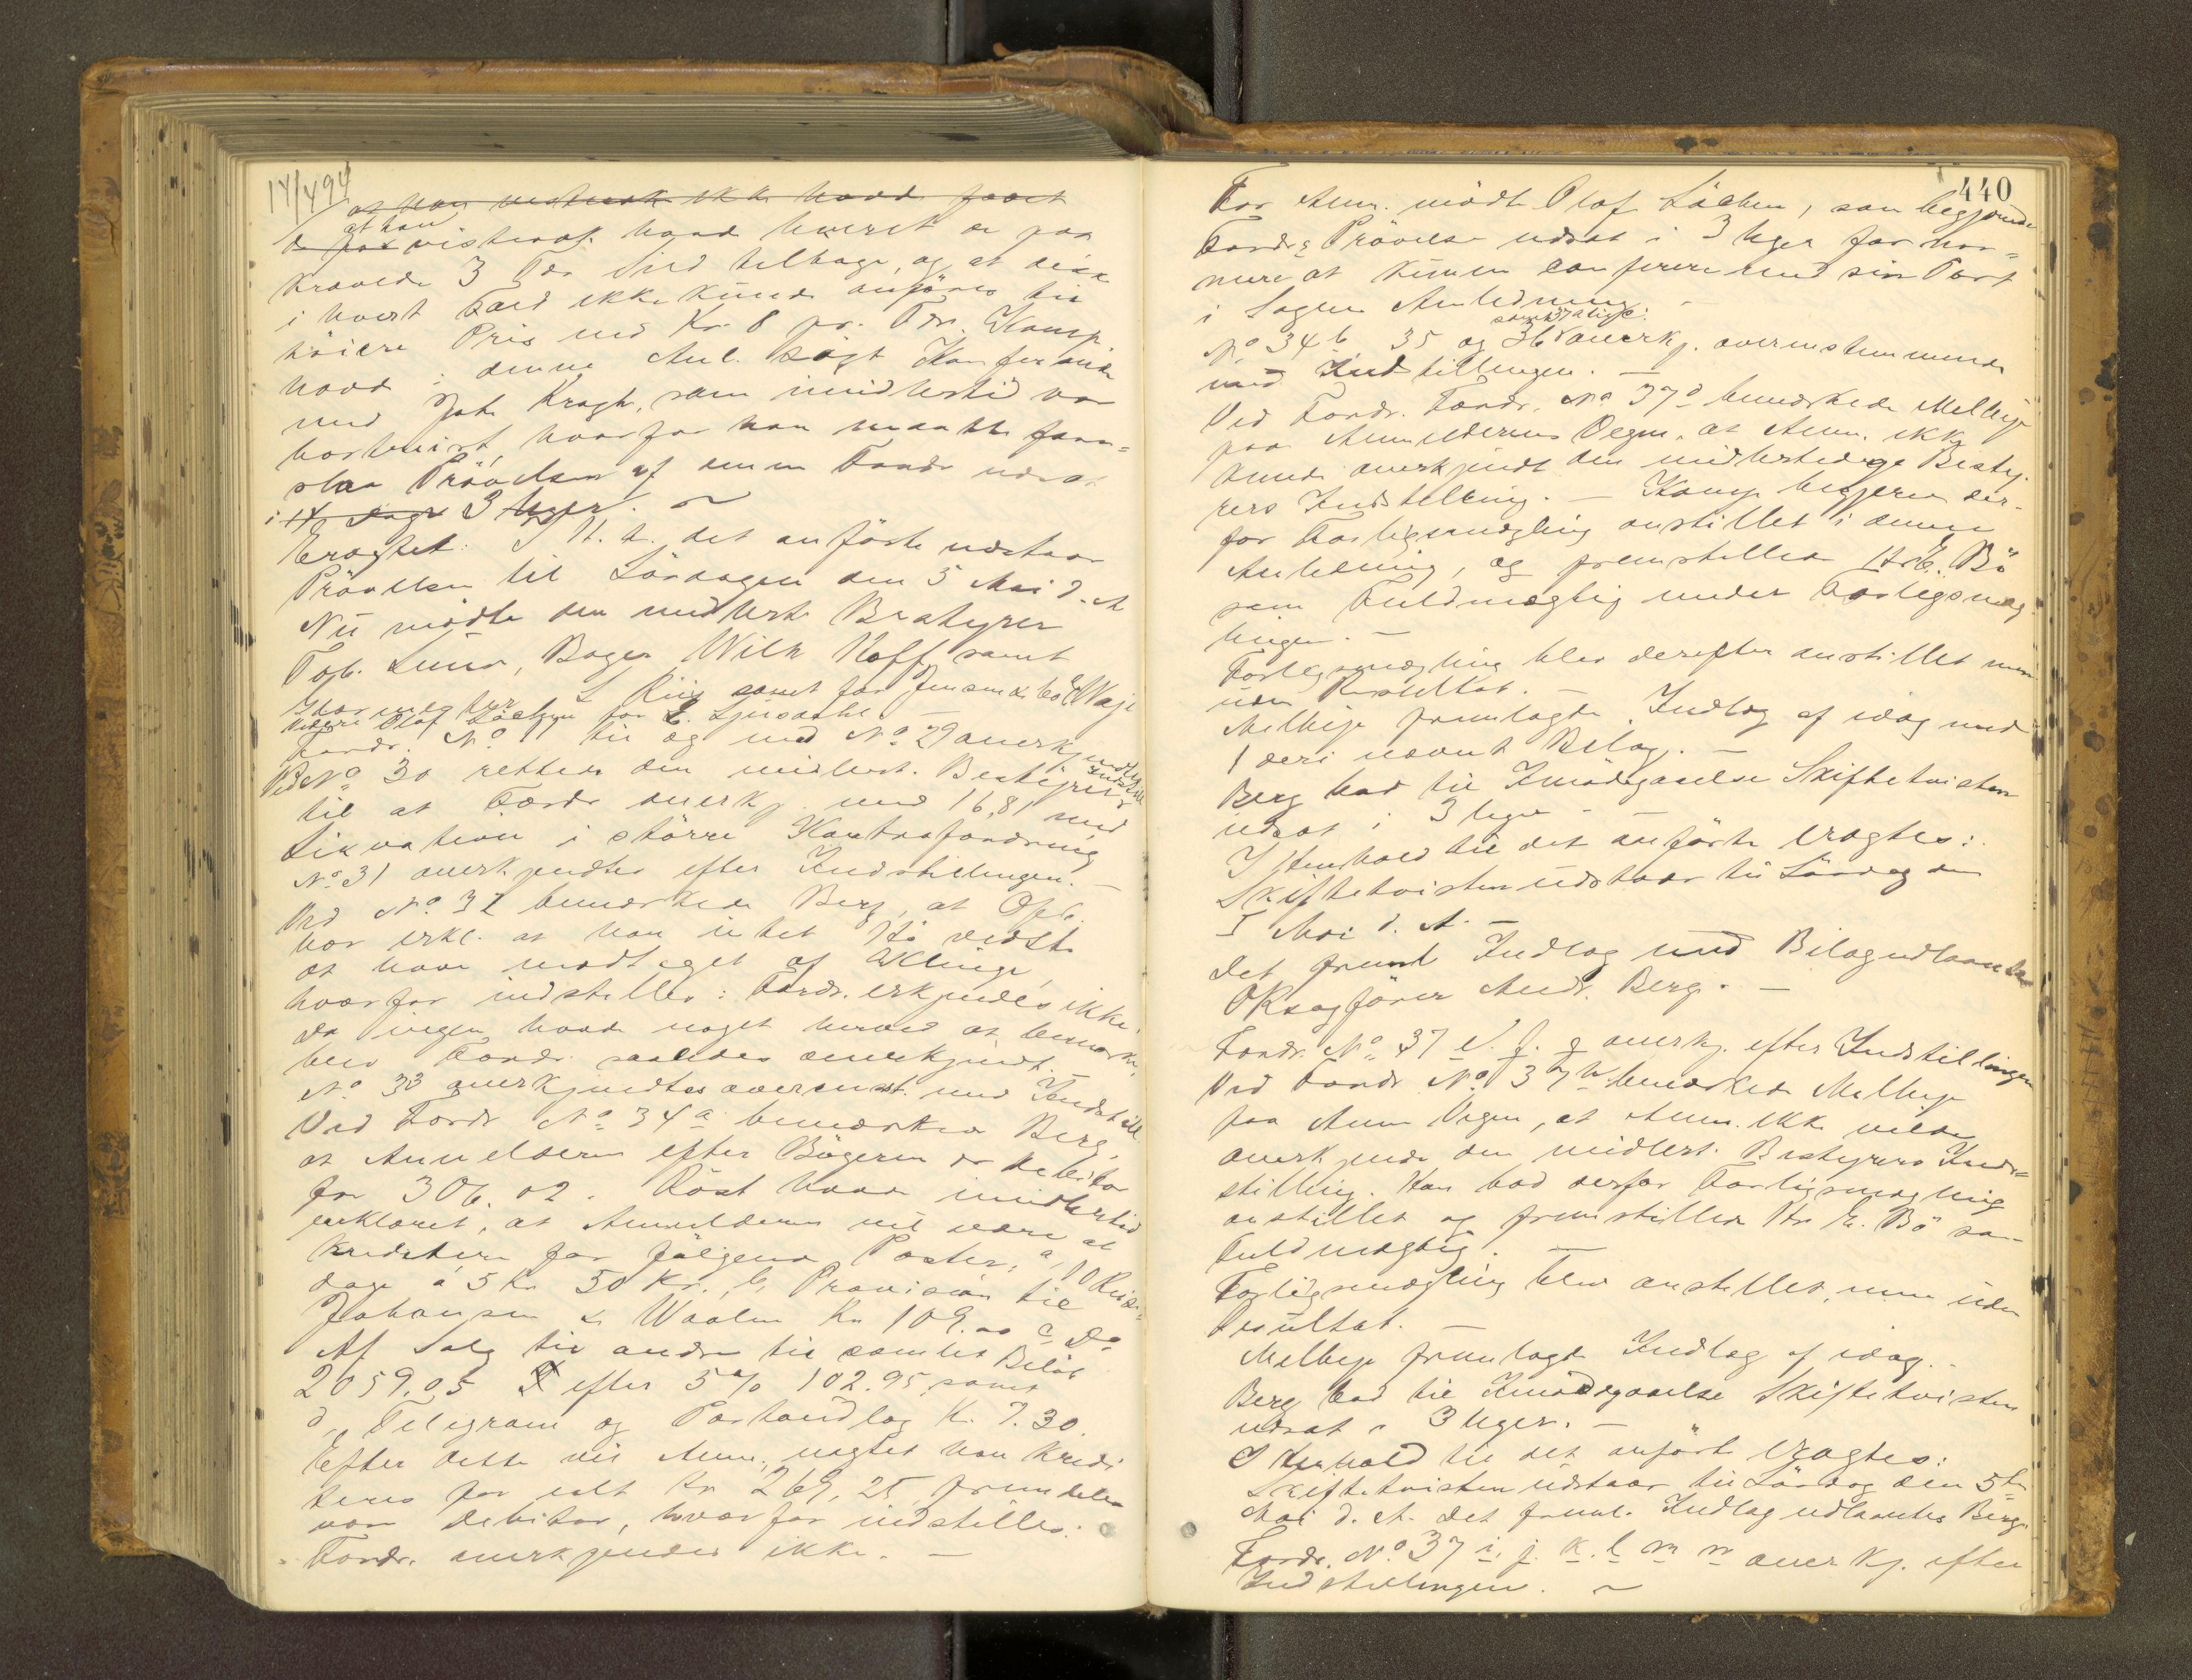 14/4 94
at han vistnok ikke havde faaet
at han
vistnok havde leveret en paa
krævede 3 Tdr Sild tilbage, og at disse
i hvert Fald ikke kunde anføres til
høiere Pris end Kr. 8 pr. Tdr. Kamp
havde i denne Anl. søgt Konferance
med Joh. Kragh, som imidlertid var
bortreist, hvorfor han maatte fore=
slaa Prøvelsen af denne Fordr. udsat
i 14 Dage 3 Uger. ~
Eragtet: I H. t. det anførte udstaar
Prøvelsen til Lørdagen den 5 Mai d. A
Nu mødte den midlert. Bestyrer
Tob. Lund, Bager Wilh Hoff samt
L Riis samt for Jensen & Co
videre Olof Löchen for L.
Fordr. No 11 til og med No 29 anerkjendtes
Ved No 30 rettede den midlert. Bestyrer Indstill
til at Fordr anerkj. med 16,81 med
Likvation i större Kontrafordring
No 31 anerkjendtes efter Indstillingen. —
Ved No 32 bemærkede Berg, at Opb.
har erkl. at han intet vidste
at have modtaget af Klinge,
hvorfor indstilles: Fordr. erkjendes ikke.
Da ingen havde noget herved at bemærke,
blev Fordr. saaledes anerkjendt.
No. 33 anerkjendtes overenst. med Indstill.
Ved Fordr No 34 a bemærkede Berg,
at Anmelderen efter Bögerne er debitor
for 306.02. Röst havde imidlertid
erklæret, at Anmelderen vil være at
kreditere for fölgende Poster, a, 10 Reise=
dage á 5 Kr 50 Kr. b, Provision til
Johansen & Waalen Kr 109.00 c Do
Af Salg til andre til samlet Belöb
2059.05 efter 5% 102.95 samt
d, Telegram og Portoudlæg Kr. 7.30.
Efter dette vil Anm., uagtet han kredi
teres for ialt Kr 269,25 fremdeles
være debitor, hvorfor indstilles:
Fordr. anerkjendes ikke. —
440
For Anm. mödte Olaf Löchen, som begjærede
Fordrs Prövelse udsat i 3 Uger for nær=
mere at kunne conferere med sin Part
i Sagens Anledning. —
samtlige
No 34 b 35 og 36 anerkj. overensstemmende
med Indstillingen. —
Ved Fordr. No 37 d bemærkede Melbye
paa Anmelderens Vegne, at Anm. ikke
kunde anerkjendt den midlertidige Besty.
rers Indstilling. — Kamp begjærede der-
for Forligsmægling anstillet i denne
Anledning, og fremstillede Hr E. Bö
som Fuldmægtig under Forligsmæg
lingen. —
Forligsmægling blev derefter anstillet men
uden Resultat. —
Melbye fremlagde Indlæg af idag med
1 deri nævnt Bilag. —
Berg bad til Imödegaaelse Skiftetvisten
udsat i 3 Uger —
I Henhold til det anförte eragtes:
Skiftetvisten udstaar til Lördag den
5 Mai d. A. —
Det freml Indlæg med Bilag udlaantes
ORsagförer Andr. Berg. —
Fordr. No 37 e. f. g anerkj. efter Indstillingen
Ved Fordr No 37 h bemærkede Melbye
paa Anm Vegne, at Anm. ikke vilde
anerkjende den midlert. Bestyrers Ind=
stilling. Han bad derfor Forligsmægling
anstillet og fremstillede Hr E. Bö som
Fuldmægtig. —
Forligsmægling blev anstillet, men uden
Resultat. —
Melbye fremlagde Indlæg af idag. —
Berg bad til Imödegaaelse Skiftetvisten
udsat i 3 Uger. —
I Henhold til det anförte eragtes:
Skiftetvisten udstaar til Lördag den 5te
Mai d. A. Det freml. Indlæg udlaantes Berg.
Fordr. No 37 i, j. k. l m n anerkj. efter
Indstillingen. ~